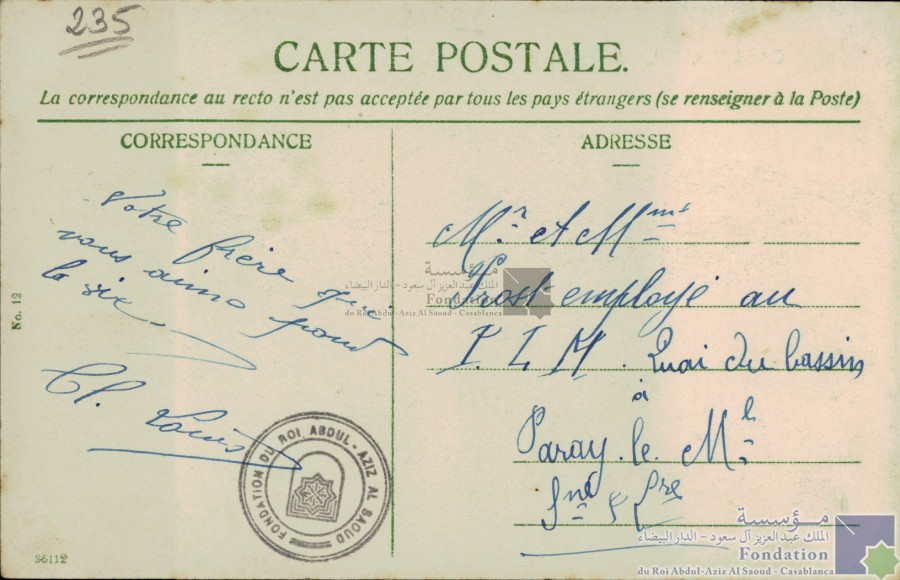 235
CARTE POSTALE.
La correspondance au recto n'est pas acceptée par tous les pays étrangers (se renseigner à la Poste)
CORRESPONDANCE
Votre frère qui
vous aime pour
la vie.
Cl. Louis
No. 12
35112
ADRESSE
Mr et Mme
Prost employé au
P. L. M. Quai du bassin
à
Paray. le. Ml
Sne & Lre
مؤسسة
الملك عبد العزيز آل سعود - الدار البيضاء
Fondation
du Roi Abdul-Aziz Al Saoud - Casablanca
FONDATION DU ROI ABDUL-AZIZ AL SAOUD
مؤسسة
الملك عبد العزيز آل سعود - الدار البيضاء
Fondation
du Roi Abdul-Aziz Al Saoud - Casablanca